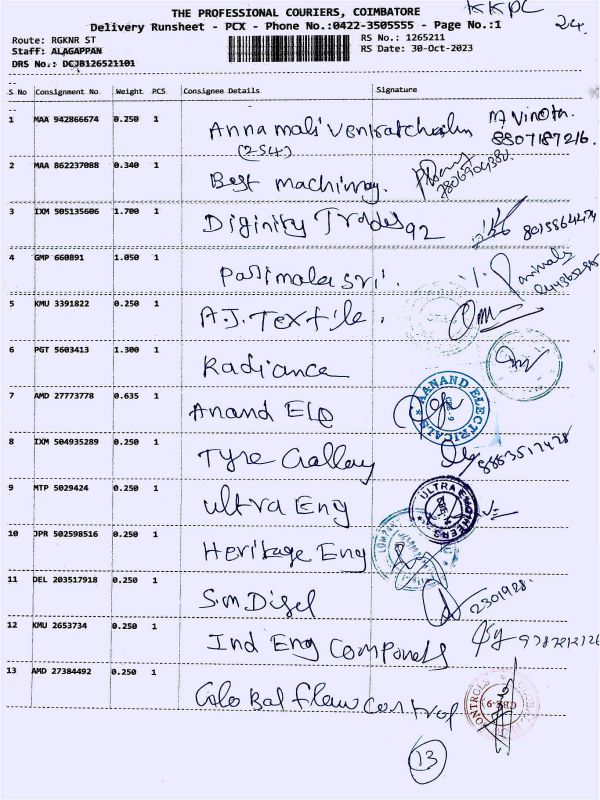 THE PROFESSIONAL COURIERS, COIMBATORE
KKPC
Delivery Runsheet - PCX - Phone No.:0422-3505555 - Page No.:1
24.
Route: RGKNR ST
RS No.: 1265211
Staff: ALAGAPPAN
RS Date: 30-Oct-2023
DRS No.: DCJB126521101
S No Consignment No Weight PCS Consignee Details Signature
1 MAA 942866674 0.250 1 Annamalai Venkatachalm M. Vinotn.
(254) 8807187216.
2 MAA 862237088 0.340 1 Best machinary.
3 IXM 505135606 1.700 1 Diginity Trades 92
4 GMP 660891 1.050 1 Parimala sri.
5 KMU 3391822 0.250 1 A.J. Textile.
6 PGT 5603413 1.300 1 Radiance
7 AMD 27773778 0.635 1 Anand Ele AANAND ELECTRICALS CBE-9
8 IXM 504935289 0.250 1 Tyre Gallay
9 MTP 5029424 0.250 1 ultra Eng ULTRA ENGINEERS
10 JPR 502598516 0.250 1 Heritage Eng
11 DEL 203517918 0.250 1 S.m Disel 2301928.
12 KMU 2653734 0.250 1 Ind Eng Componets
13 AMD 27384492 0.250 1 Global flow control CONTROLS CBE-9
13